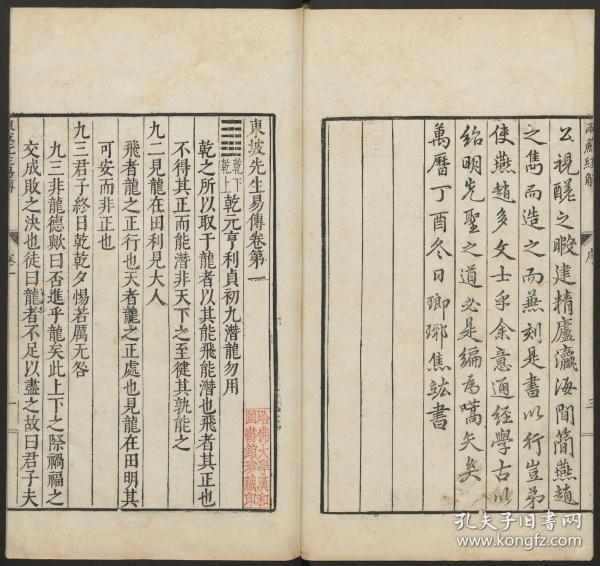 兩蘇經解
序
三
公視醝之暇建精廬瀛海間簡燕趙
之雋而造之而無刻是書以行豈弟
使燕趙多文士乎余意通經學古以
紹明先聖之道必是編爲嚆矢矣
萬曆丁酉冬日瑯琊焦竑書
東坡先生易傳卷第一
乾下乾上乾元亨利貞初九潛龍勿用
乾之所以取于龍者以其能飛能潛也飛者其正也
不得其正而能潛非天下之至健其孰能之
九二見龍在田利見大人
飛者龍之正行也天者龍之正處也見龍在田明其
可安而非正也
九三君子終日乾乾夕惕若厲无咎
九三非龍德歟曰否進乎龍矣此上下之際禍福之
交成敗之決也徒曰龍者不足以盡之故曰君子夫
卷一
一
哈佛大學漢和
圖書館珍藏印
孔夫子旧书网
www.kongfz.com